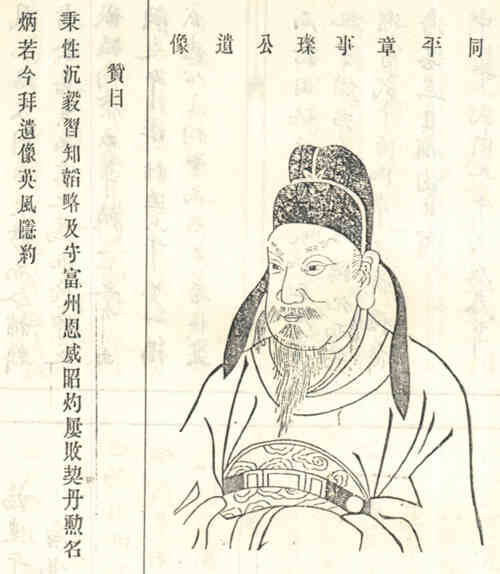 同平章事璨公遺像
贊曰
秉性沉毅習知韜略及守富州恩威昭灼屢敗契丹勲名
炳若今拜遺像英風隱約